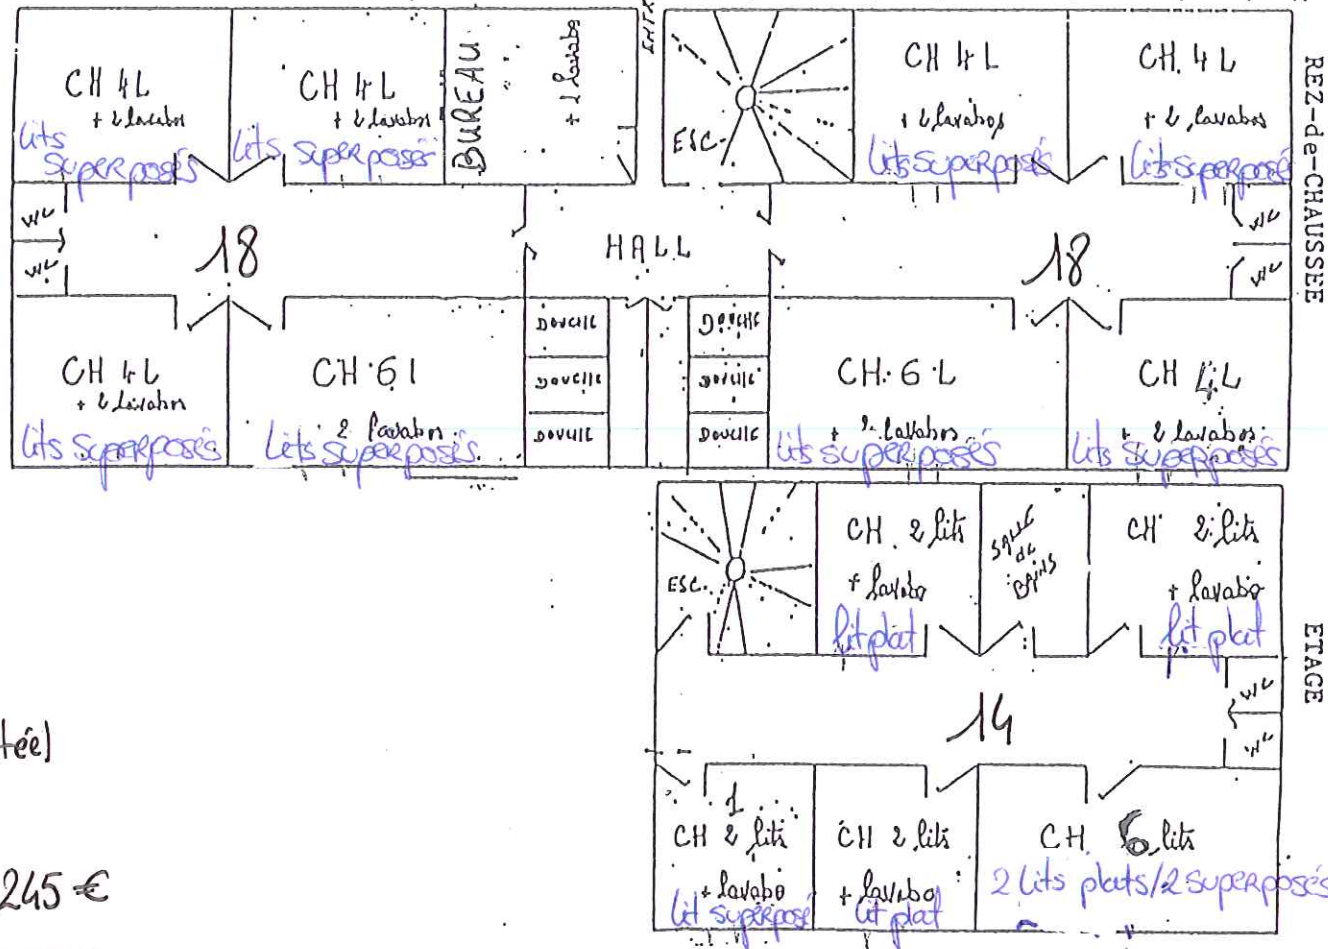 CH 4L
+ 2 lavabos
lits
superposés
CH 4L
+ 2 lavabos
lits superposés
BUREAU
+ 2 lavabo
ESC.
CH 4L
+ 2 lavabos
lits superposés
CH. 4L
+ 2 lavabos
lits superposés
REZ-de-CHAUSSEE
WC
WC
18
HALL
18
WC
WC
CH 4L
+ 2 lavabos
lits superposés
CH 6 l
2 lavabos
lits superposés
DOUCHE
DOUCHE
DOUCHE
DOUCHE
DOUCHE
DOUCHE
CH. 6 L
+ 2 lavabos
lits superposés
CH 4L
+ 2 lavabos
lits superposés
ESC.
CH. 2 lits
+ lavabo
lit plat
SALLE
de
BAINS
CH 2 lits
+ lavabo
lit plat
ETAGE
14
WC
WC
1
CH 2 lits
+ lavabo
lit superposé
CH 2 lits
+ lavabo
lit plat
CH 6 lits
2 lits plats/2 superposés
tée)
245 €